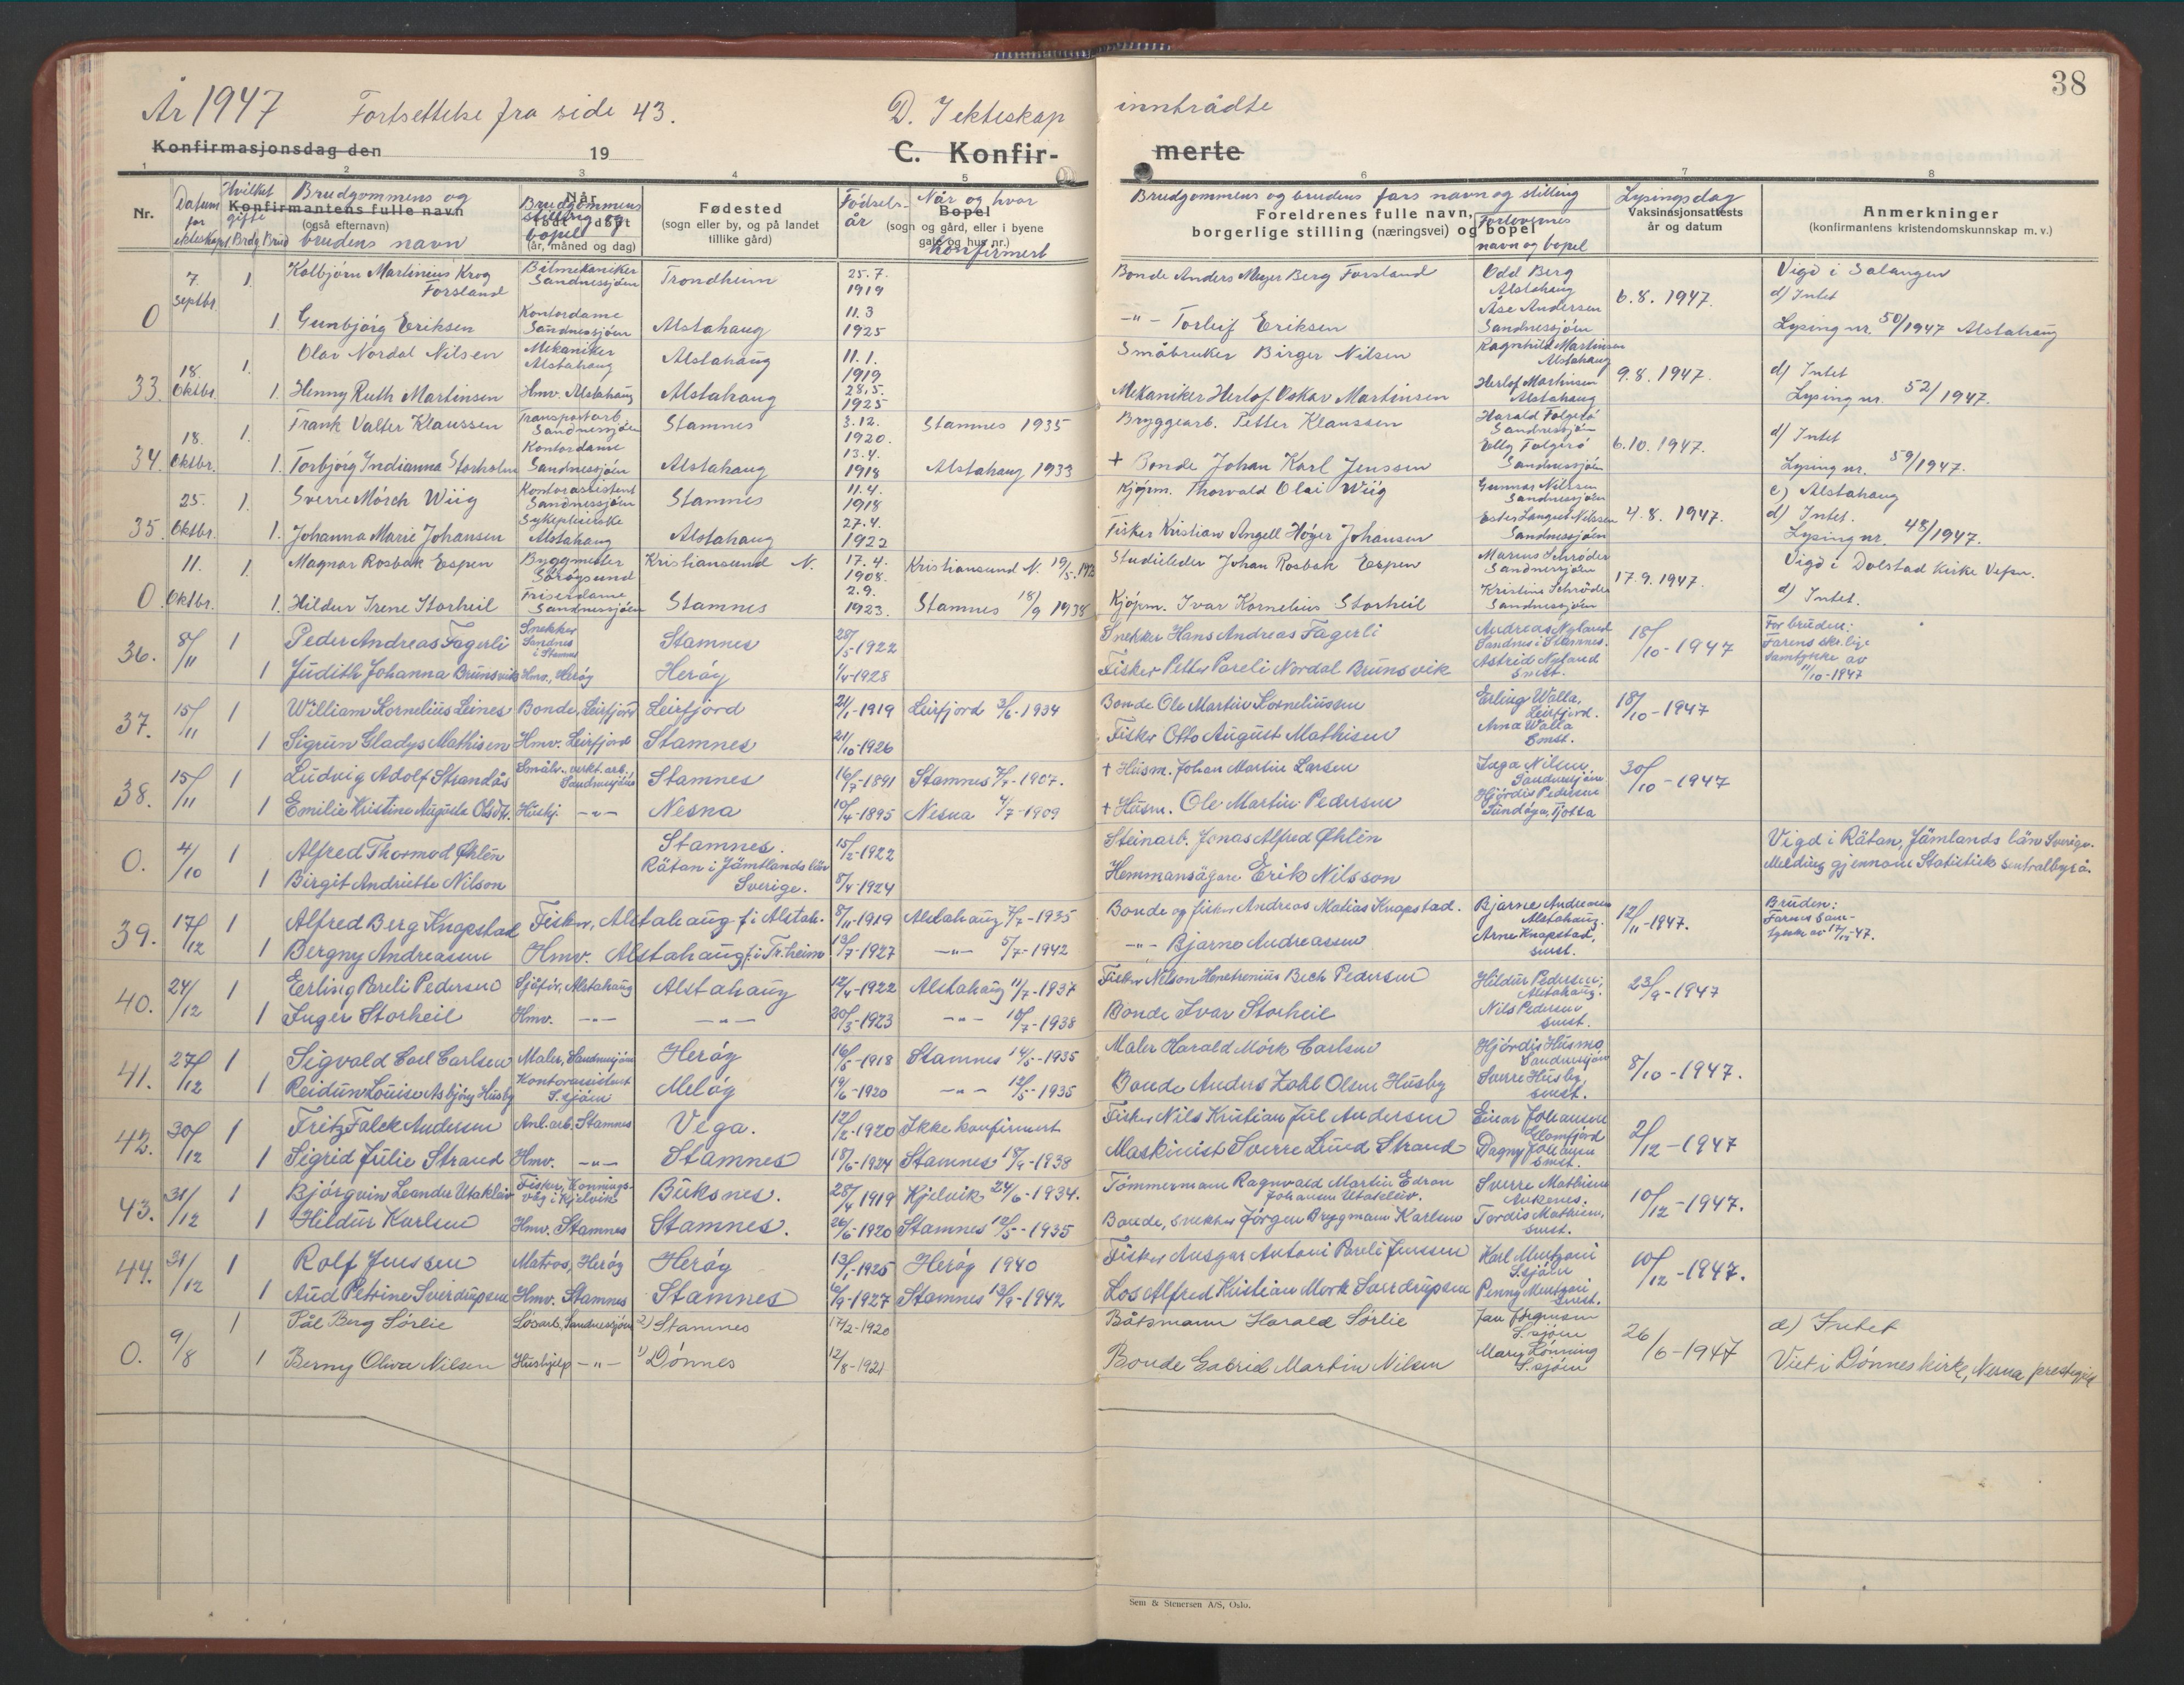 38
År 1947 Fortsettelse fra side 43. D. I ekteskap inntrådte
Konfirmasjonsdag den 19 C. Konfir- merte
1 2 3 4 5 6 7 8
Nr. Datum for ekteskapet Hvilket gifte Brdg Brud
Brudgommens og brudens navn
Konfirmantens fulle navn
(også efternavn)
Brudgommens stilling og bopel
Når født døpt
(år, måned og dag)
Fødested
(sogn eller by, og på landet
tillike gård)
Fødsels-
år
Når og hvor
Konfirmert
Bopel
(sogn og gård, eller i byene
gate og hus nr.)
Brudgommens og brudens fars navn og stilling
Foreldrenes fulle navn,
borgerlige stilling (næringsvei) og bopel
Forlovernes
navn og bopel
Lysingsdag
Vaksinasjonsattests
år og datum
Anmerkninger
(konfirmantens kristendomskunnskap m. v.)
0 7. Septbr. 1. Kolbjørn Martinius Krog Forsland Bilmekaniker Sandnessjøen Trondheim 25.7. 1919 Bonde Anders Meyer Berg Forsland Odd Berg Alstahaug 6.8.1947. Vigd i Salangen d) Intet
1 Gunbjørg Eriksen Kontordame Sandnessjøen Alstahaug 11.3 1925 -"- Torleif Eriksen Åse Andersen Sandnessjøen Lysing nr. 50/1947 Alstahaug
33. 18. Oktbr. 1. Olav Nordal Nilsen Mekaniker Alstahaug Alstahaug 11.1. 1919 Småbruker Birger Nilsen Ragnhild Martinsen Alstahaug 9.8.1947. d) Intet
1. Henny Ruth Martinsen Hmv. Alstahaug Alstahaug 28.5. 1925 Mekaniker Herlof Oskar Martinsen Herlof Martinsen Alstahaug Lysing nr. 52/1947.
34. 18. Oktbr. 1. Frank Valter Klaussen Transportarb. Sandnessjøen Stamnes 3.12. 1920. Stamnes 1935 Bryggearb. Petter Klaussen Harald Folgerø Sandnessjøen 6.10.1947. d) Intet
1. Torbjørg Indianna Storholm Kontordame Sandnessjøen Alstahaug 13.4. 1918 Alstahaug 1933 + Bonde Johan Karl Jenssen Elly Folgerø Sandnessjøen Lysing nr. 59/1947.
35. 25. Oktbr. 1. Sverre Mørch Wiig Kontorassistent Sandnessjøen Stamnes 11.4. 1918 Kjøpm. Thorvald Olai Wiig Gunnar Nilssen Sandnessjøen 4.8.1947. c) Alstahaug d) Intet.
1. Johanna Marie Johansen Sykepleierske Alstahaug Alstahaug 27.4. 1922 Fisker Kristian Angell Høyer Johansen Ester Langset Nilssen Sandnessjøen Lysing nr. 48/1947.
0 11. Oktbr. 1. Magnar Rosbak Espen Byggmester Kristiansund N. 17.4. 1908. Kristiansund N. Studieleder Johan Rosbak Espen Marius Schrøder Sandnessjøen 17.9.1947. Vigd i Dolstad kirke Vefsn.
1. Hildur Irene Storheil Friserdame Sandnessjøen Stamnes 2.9. 1923. Stamnes 18/9 1938 Kjøpm. Ivar Kornelius Storheil Kristine Schrøder Sandnessjøen d) Intet.
36. 8/11 1 Peder Andreas Fagerli Snekker Sandnes i Stamnes Stamnes 28/5-1922 Snekker Hans Andreas Fagerli Andreas Nyland Sandnes i Stamnes. 18/10-1947 For bruden: Farens skr.lige samtykke av 11/10-1947
1 Judith Johanna Brunsvik Hmv., Herøy Herøy 1/4-1928 Fisker Petter Pareli Nordal Brunsvik Astrid Nyland smst.
37. 15/11 1 William Kornelius Leines Bonde, Leirfjord Leirfjord 21/1-1919 Leirfjord 3/6-1934 Bonde Ole Martin Korneliussen Erling Walla, Leirfjord. 18/10-1947
1 Sigrun Gladys Mathisen Hmv. Leirfjord Stamnes 21/10-1926 Fisker Otto August Mathisen Anna Walla smst.
38. 15/11 1 Ludvig Adolf Strandås Sandnessjøen Stamnes 16/7-1891 Stamnes 7/7-1907. + Husm. Johan Martin Larsen Inga Nilsen Sandnessjøen 30/10-1947
1 Emilie Kristine Augusta Olsdtr. Hushj. -"- Nesna 10/4-1895 Nesna 4/7-1909 + Husm. Ole Martin Pedersen Hjørdis Pedersen Tjøtta
0. 4/10 1 Alfred Thormod Øhlén Stamnes. 15/2-1922 Steinarb. Jonas Alfred Øhlén Vigd i Rätan, Jämlands län Sverige.
1 Birgit Andriette Nilson Rätan i Jämtlands län Sverige. 8/4-1924 Hemmansägare Erik Nilsson Melding gjennom Statistisk sentralbyrå.
39. 17/12 1 Alfred Berg Knapstad Fisker, Alstahaug f. i Alstah. 8/11-1919 Alstahaug 7/7-1935 Bonde og fisker Andreas Matias Knapstad. Bjarne Andreassen Alstahaug. 12/11-1947. Bruden: Farens sam-
1 Bergny Andreassen Hmv. Alstahaug f. i Tr.heim 13/7-1927 -"- 5/7-1942 -"- Bjarne Andreassen Arne Knapstad, smst.
40. 24/12 1 Erling Pareli Pedersen Sjåfør, Alstahaug Alstahaug 12/4-1922 Alstahaug 11/7-1937 Fisker Nilson Pedersen Hildur Pedersen, Alstahaug. 23/9-1947
1 Inger Storheil Hmv. -"- -"- 20/3-1923 -"- 10/7-1938 Bonde Ivar Storheil Nils Pedersen smst.
41. 27/12 1 Sigvald Carl Carlsen Maler, Sandnessjøen Herøy 16/5-1918 Stamnes 14/5-1935 Maler Harald Mörk Carlsen Hjördis Husmo Sandnessjøen 8/10-1947.
1 Reidun Louise Asbjørg Husby Kontorassistent S.sjøen Meløy 19/6-1920 -"- 12/5-1935 Bonde Anders Zahl Olsen Husby Sverre Husby, smst.
42. 30/12 1 Fritz Falck Andersen Anl.arb. Stamnes Vega. 12/2-1920 Ikke konfirmert Fisker Nils Kristian Jul Andersen Einar Johansen Glomfjord 2/12-1947
1 Sigrid Julie Strand Hmv. -"- Stamnes 18/6-1924 Stamnes 18/9-1938 Maskinist Sverre Lund Strand Dagny Johansen smst.
43. 31/12 1 Bjørgvin Leander Utakleiv Fisker, Honnings-våg i Kjelvik Buksnes. 28/4 1919 Kjelvik 24/6-1934. Tømmermann Ragnvald Martin Edron Johansen Utakleiv. Sverre Mathisen Ankenes. 10/12-1947.
1 Hildur Karlsen Hmv. Stamnes Stamnes. 26/6-1920 Stamnes 12/5-1935 Bonde, snekker Jørgen Brygmann Karlsen Tordis Mathisen, smst.
44. 31/12 1 Rolf Jenssen Matros, Herøy Herøy 13/1-1925 Herøy 1940 Fisker Ansgar Antoni Pareli Jenssen Karl Mentzoni S.sjøen 10/12-1947.
1 Aud Petrine Sverdrupsen Hmv. Stamnes Stamnes 6/9-1927 Stamnes 13/9-1942 Los Alfred Kristian Mork Sverdrupsen Penny Mentzoni smst.
0. 9/8 1 Pål Berg Sørlie Løsarb. Sandnessjøen 2) Stamnes 17/2-1920 Båtsmann Harald Sørlie Jan Jørgensen S.sjøen 26/6-1947 d) Intet
1 Berny Oliva Nilsen Hushjelp -"- 1) Dønnes 12/8-1921 Bonde Gabriel Martin Nilsen Mary Rønning S.sjøen Viet i Dønnes kirke, Nesna prestegjeld
Sem & Stenersen A/S, Oslo.